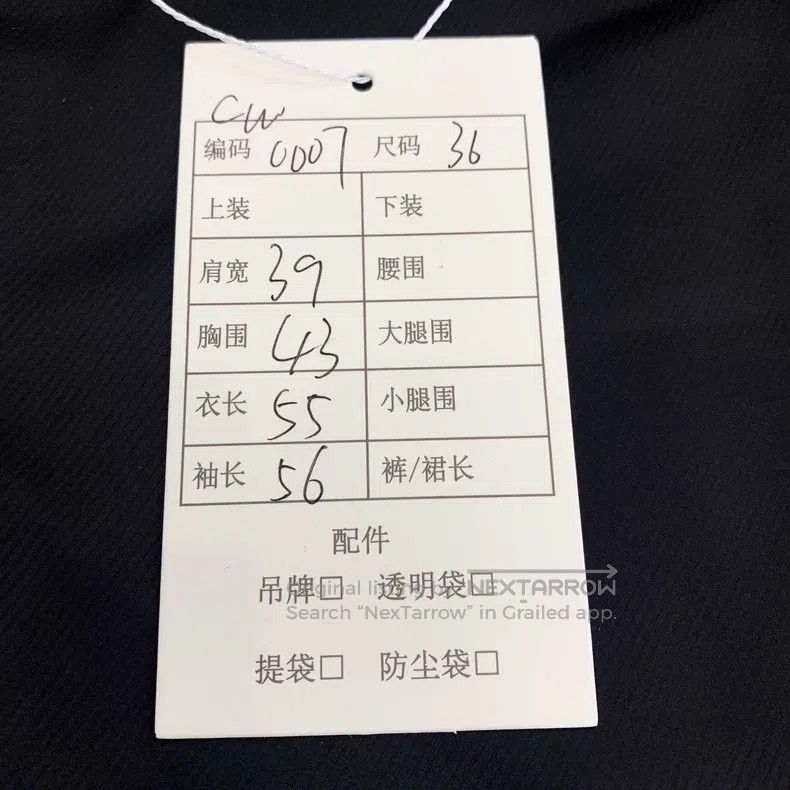 CW
编码 0007 尺码 36
上装 下装
肩宽 39 腰围
胸围 43 大腿围
衣长 55 小腿围
袖长 56 裤/裙长
配件
吊牌□ 透明袋□
Original listing by "NEXTARROW
Search "NexTarrow" in Grailed app.
提袋□ 防尘袋□